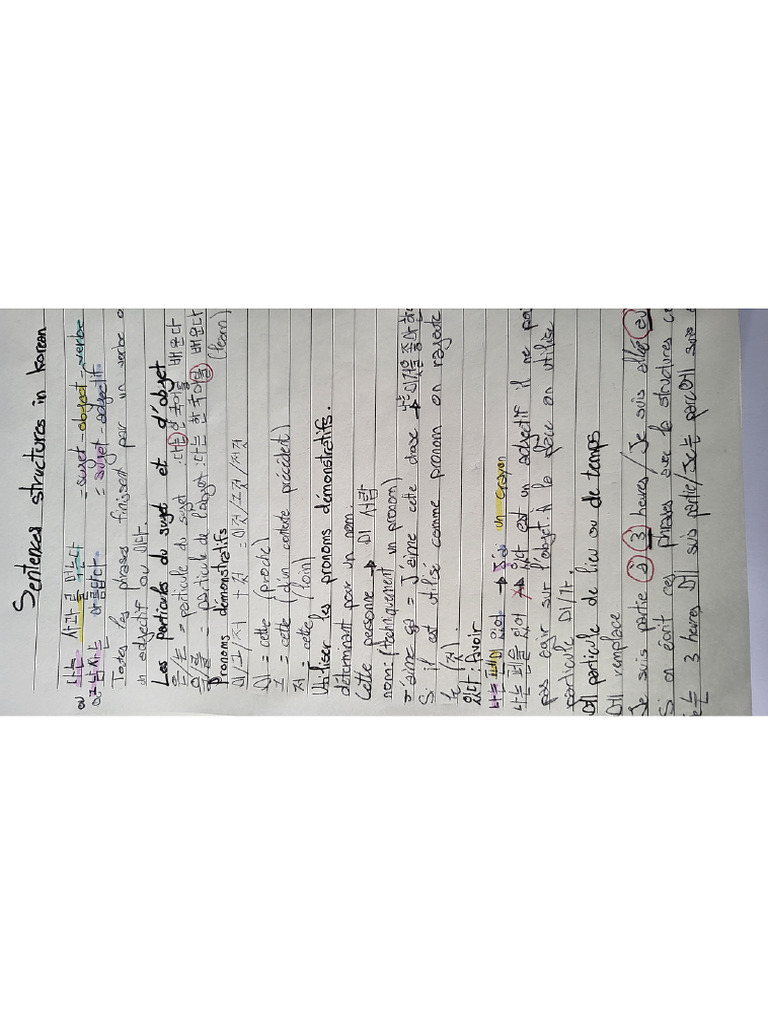 Sentences structures in korean
a) 나는 사과를 먹는다 = sujet - object - verbe
b) 그 남자는 아름답다 = sujet - adjectif
Toutes les phrases finissent par un verbe o
un adjectif ou 이다.
Les particules du sujet et d'objet
은/는 = particule du sujet : 나는 한국어를 배운다
을/를 = particule de l'objet : 나는 한국어를 배운다
(learn)
Pronoms démonstratifs
이/그/저 + 것 = 이것/그것/저것
이 = cette (proche)
그 = cette (d'un contexte précédent)
저 = cette (loin)
Utiliser les pronoms démonstratifs.
déterminant pour un nom.
Cette personne → 이 사람
nom: (techniquement un pronom)
J'aime ça = J'aime cette chose → 나는 이것을 좋아하
S: il est utilisé comme pronom on rajoute
(것).
있다: Avoir
나는 펜이 있어 → J'ai un crayon
나는 펜을 있어 → 있다 est un adjectif il ne pe
pas agir sur l'objet. À la place on utilise
particule 이/가.
에 particule de lieu ou de temps
에 remplace
Je suis partie à 3 heures / Je suis allée au
Si on écrit ces phrases avec la structures co
Je는 3 heures 에 suis partie / Je는 parc에 suis